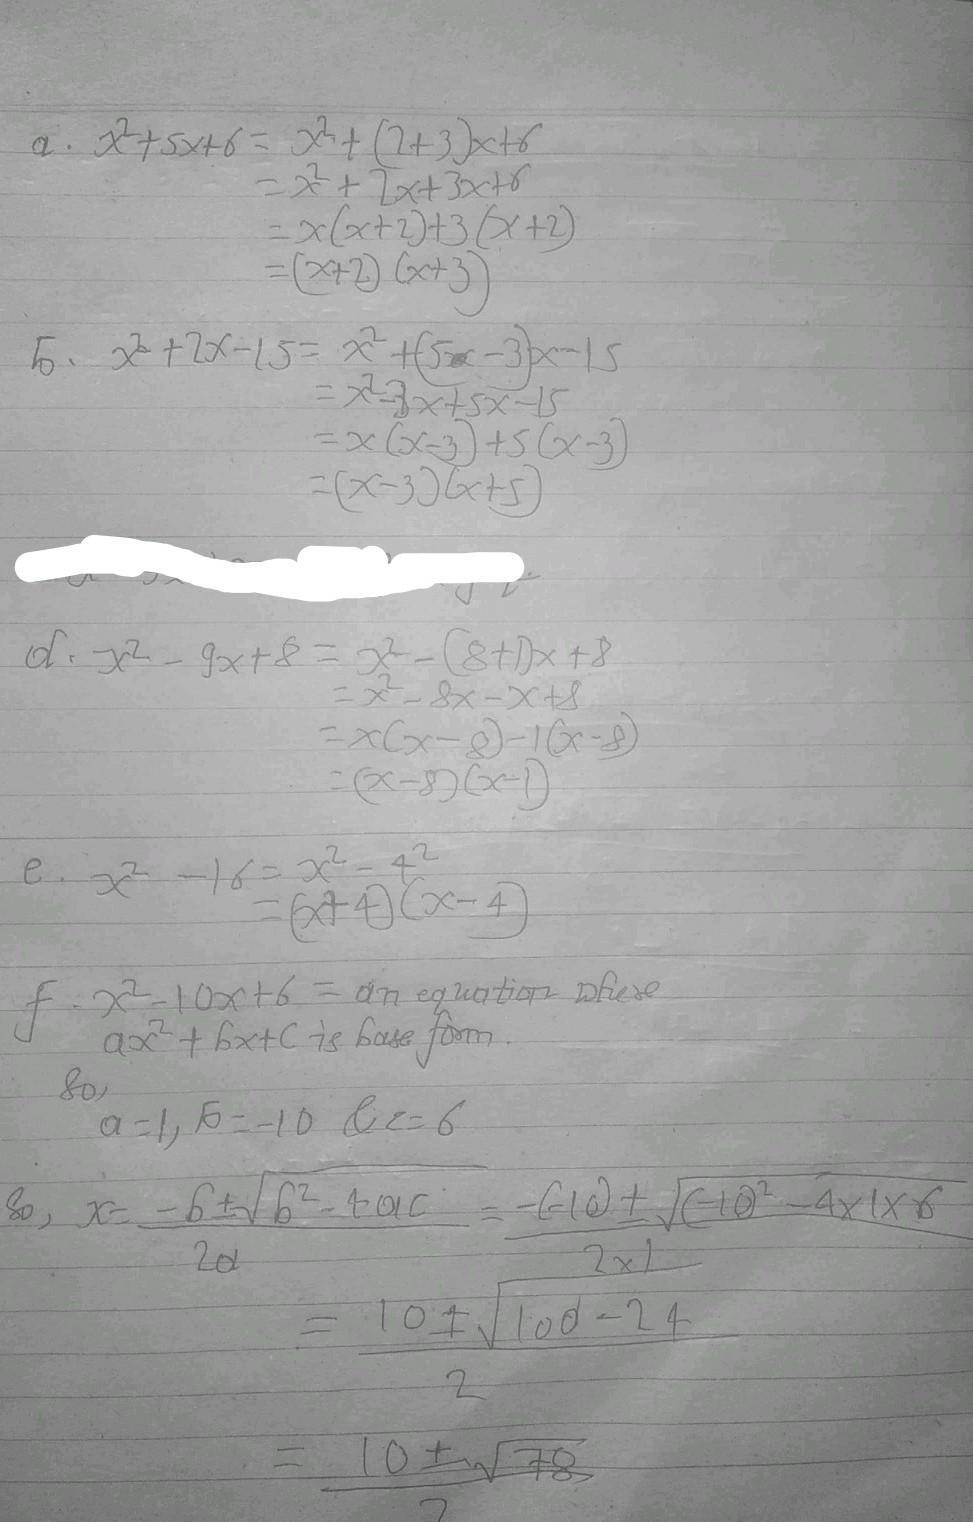 a. x²+5x+6 = x²+(2+3)x+6
= x²+2x+3x+6
= x(x+2)+3(x+2)
= (x+2)(x+3)
b. x²+2x-15 = x²+(5-3)x-15
= x²-3x+5x-15
= x(x-3)+5(x-3)
= (x-3)(x+5)
d. x²-9x+8 = x²-(8+1)x+8
= x²-8x-x+8
= x(x-8)-1(x-8)
= (x-8)(x-1)
e. x²-16 = x²-4²
= (x+4)(x-4)
f. x²-10x+6 = an equation where
ax²+bx+c is base form.
So,
a=1, b=-10 & c=6
So, x= -b±√b²-4ac / 2a = -(-10)±√(-10)²-4x1x6 / 2x1
= 10±√100-24 / 2
= 10±√78 / 2